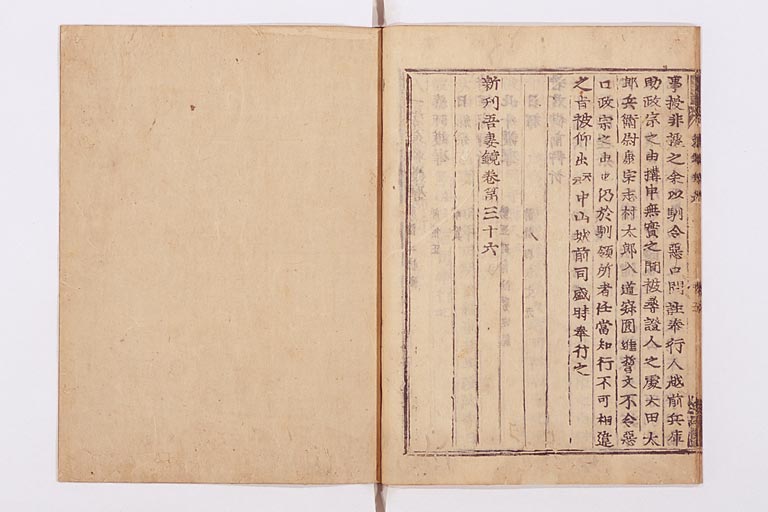 事授非據之余以馴令惡口問注奉行人越前兵庫
助政宗之由搆申無實之間被尋證人之處太田太
郎兵衛尉康宗志村太郎入道寂圓進誓文不令惡
口政宗之由申仍於馴領所者任當知行不可相違
之旨被仰出云云中山城前司盛時奉行之
新刊吾妻鏡卷第三十六